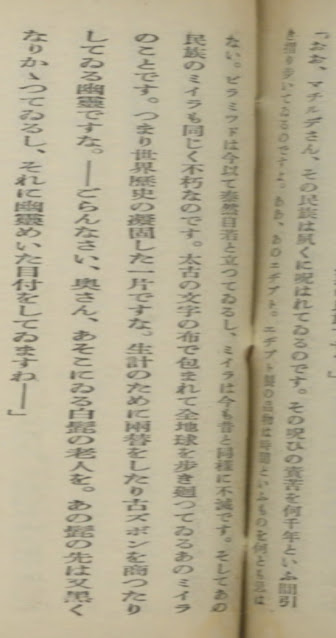 「おお、マチルデさん、その民族は夙くに呪はれてゐるのです。その呪ひの責苦を何千年といふ間引
き摺り歩いてゐるのですよ。ああ、あのエヂプト。エヂプト製の品物は時間といふものを何とも思は
ない。ピラミツドは今以て泰然自若と立つてゐるし、ミイラは今も昔と同様に不滅です。そしてあの
民族のミイラも同じく不朽なのです。太古の文字の布で包まれて全地球を歩き廻つてゐるあのミイラ
のことです。つまり世界歴史の凝固した一片ですな。生計のために兩替をしたり古ズボンを商つたり
してゐる幽靈ですな。――ごらんなさい、奥さん、あそこにゐる白髭の老人を。あの髭の先は又黒く
なりかゝつてゐるし、それに幽靈めいた目付をしてゐますわ――」